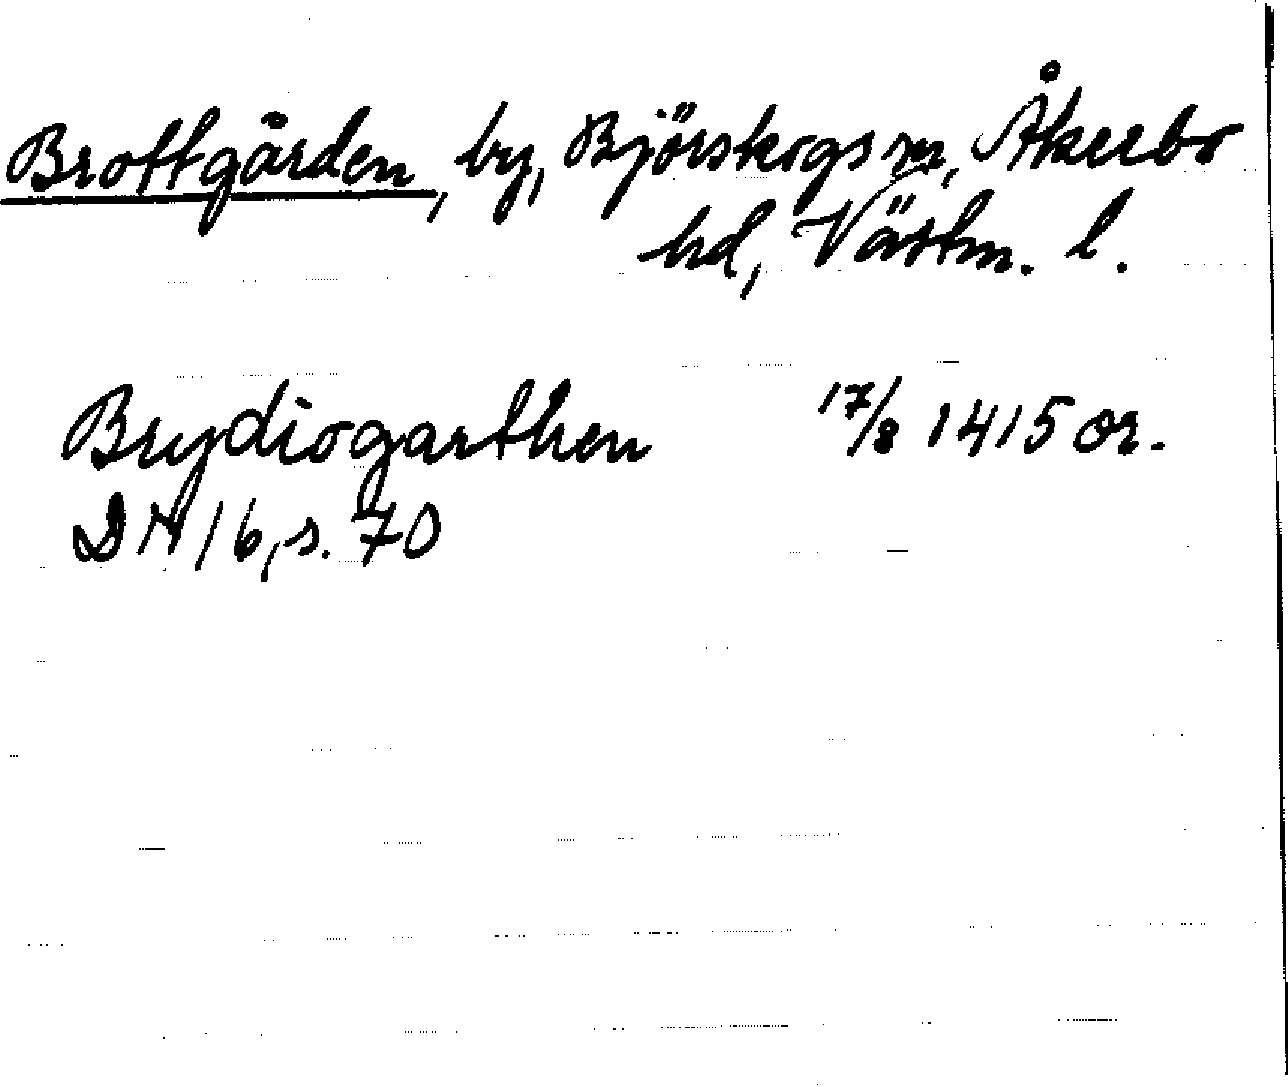 Brottgården, by, Björskogs sn, Åkerbo
hd, Västm. l.
Brydiogarthen 17/8 1415 or.
DN 16, s. 70